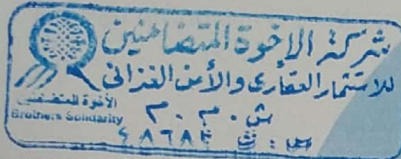 شركة الإخوة المتضامنين
للاستثمار العقاري والأمن الغذائي
ش.م.م
الأخوة المتضامنين
Brothers Solidarity
س : ث ٤٨٦٨٤